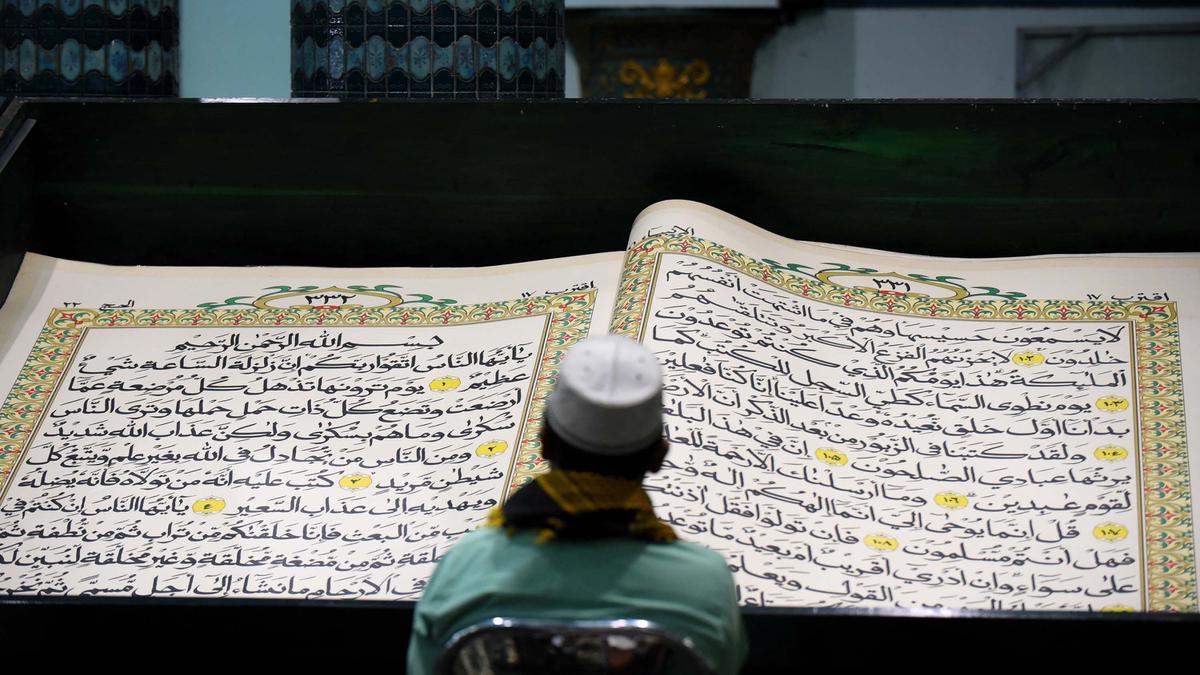 الانبياء
٣٣١
اقترب ١٧
لايسمعون حسيسها وهم في مااشتهت انفسهم
خلدون ١٠٢ لايحزنهم الفزع الاكبر وتتلقهم
الملئكة هذا يومكم الذي كنتم توعدون
١٠٣ يوم نطوي السماء كطي السجل للكتب كما
بدانا اول خلق نعيده وعدا علينا انا كنا فعلين
١٠٤ ولقد كتبنا في الزبور من بعد الذكر ان الارض
يرثها عبادي الصلحون ١٠٥ ان في هذا
لقوم عبدين ١٠٦ وما ارسلنك الا رحمة
١٠٧ قل انما يوحى الي انما الهكم اله
فهل انتم مسلمون ١٠٨ فان تولوا فقل
على سواء وان ادري اقريب ام بعيد ما
من القول ويعلم
اقترب ١٧
٣٣٢
الحج ٢٢
بسم الله الرحمن الرحيم
يايها الناس اتقوا ربكم ان زلزلة الساعة شيء
عظيم ١ يوم ترونها تذهل كل مرضعة عما
ارضعت وتضع كل ذات حمل حملها وترى الناس
سكرى وما هم بسكرى ولكن عذاب الله شديد
٢ ومن الناس من يجادل في الله بغير علم ويتبع كل
شيطن مريد ٣ كتب عليه انه من تولاه فانه يضله
ويهديه الى عذاب السعير ٤ يايها الناس ان كنتم في
من البعث فانا خلقنكم من تراب ثم من نطفة ثم
من مضغة مخلقة وغير مخلقة لنبين
في الارحام ما نشاء الى اجل مسمى ثم